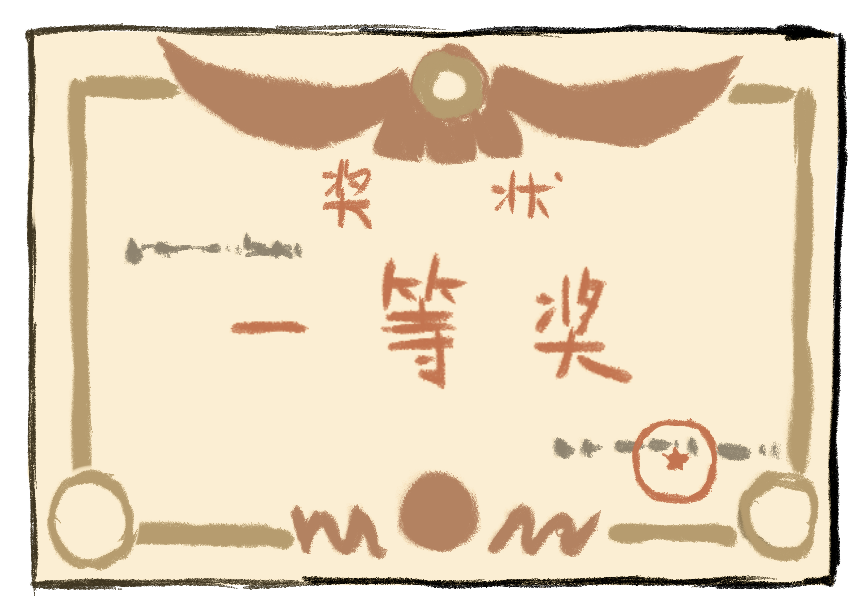 奖 状
一 等 奖